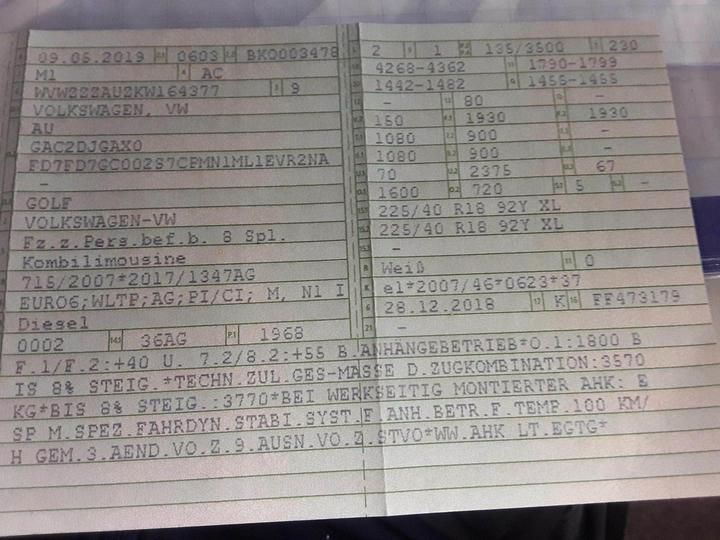 09.05.2019 0603 BKO003478
M1 AC
WVWZZZAUZKW164377 9
VOLKSWAGEN, VW
AU
GAC2DJGAX0
FD7FD7GC002S7CFMN1ML1EVR2NA
-
GOLF
VOLKSWAGEN-VW
Fz.z.Pers.bef.b. 8 Spl.
Kombilimousine
715/2007*2017/1347AG
EURO6;WLTP;AG;PI/CI; M, N1 I
Diesel
0002 14.1 36AG P.1 1968
2 1 135/3500 230
4268-4362 1790-1799
1442-1482 1455-1455
- 80 -
150 1930 1930
1080 900 -
1080 900 -
70 2375 67
1600 720 5 -
225/40 R18 92Y XL
225/40 R18 92Y XL
-
Weiß 0
e1*2007/46*0623*37
28.12.2018 K FF473179
21 -
F.1/F.2:+40 U. 7.2/8.2:+55 B.ANHÄNGEBETRIEB*O.1:1800 B
IS 8% STEIG.*TECHN.ZUL.GES-MASSE D.ZUGKOMBINATION:3570
KG*BIS 8% STEIG.:3770*BEI WERKSEITIG MONTIERTER AHK: E
SP M.SPEZ.FAHRDYN.STABI.SYST.F.ANH.BETR.F.TEMP.100 KM/
H GEM.3.AEND.VO.Z.9.AUSN.VO.Z.STVO*WW.AHK LT.EGTG*